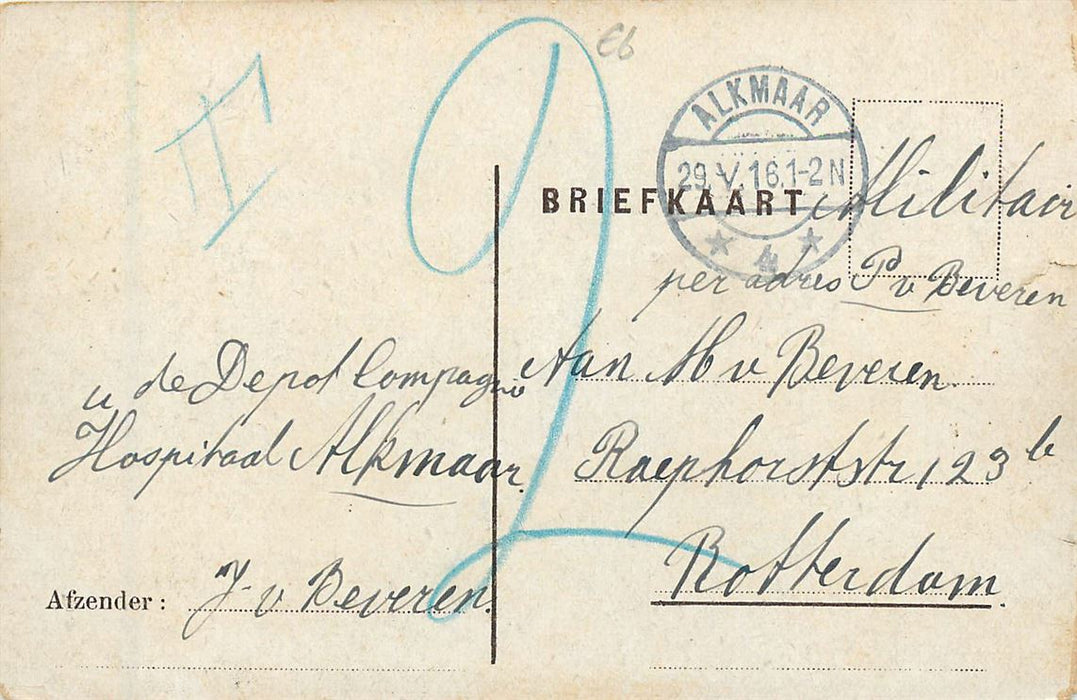 2
ALKMAAR
29.V.16.1-2N
4
BRIEFKAART
Militair
per adres P v Beveren
Aan M v Beveren
Raephorststr 123 b
Rotterdam
de Depot Compagnie
Hospitaal Alkmaar.
Afzender: J. v Beveren.